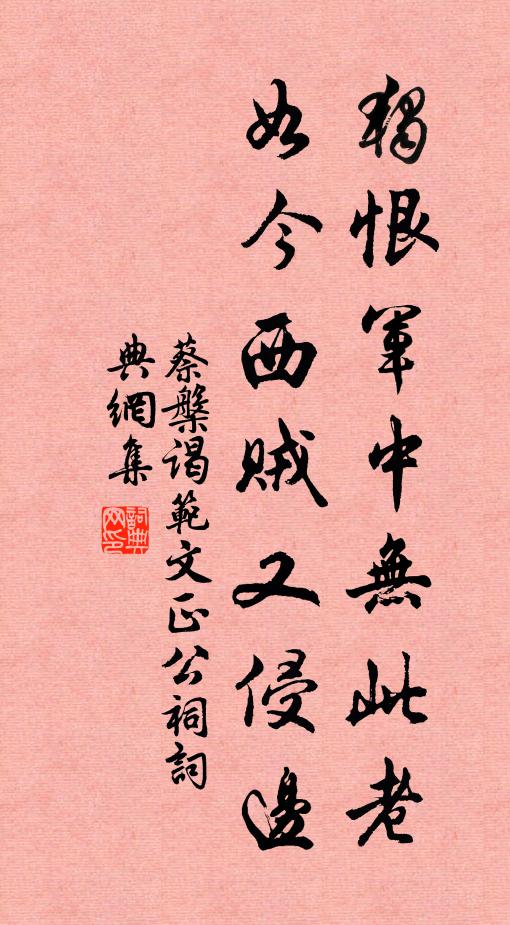 獨恨軍中無此老
如今西賊又侵邊
蔡槃謁範文正公祠詞
典網集
詞典網印